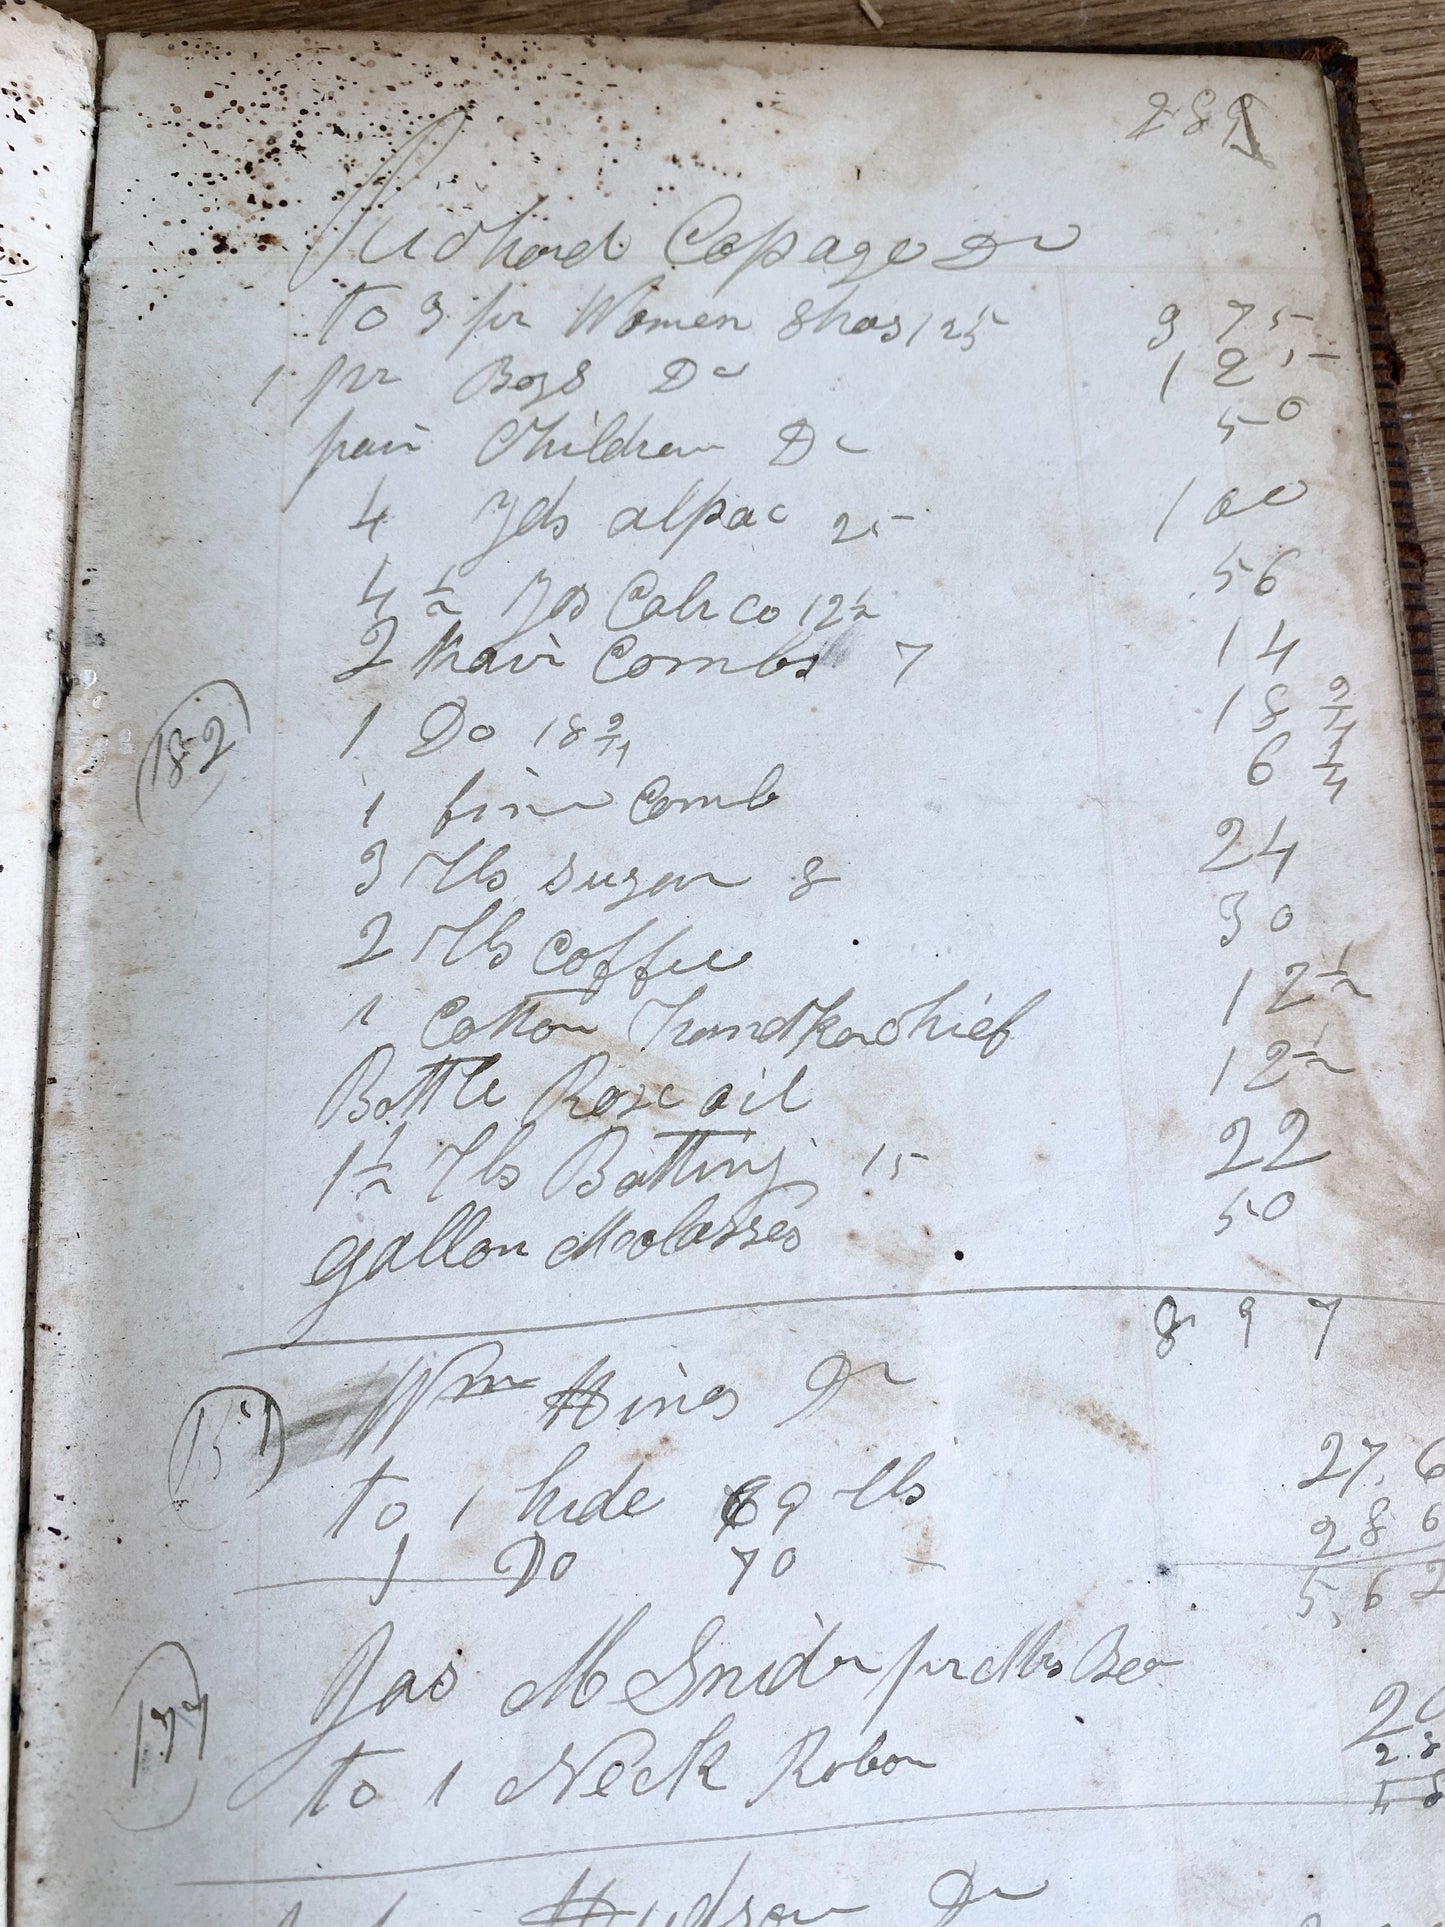 289
Richard Copage Dr
to 3 pr Women Shos 125 3 75
1 pr Boys Do 1 25
pair Children Do 50
4 Yds alpac 25 1 00
4 1/2 Yds Calico 12 1/2 56
2 hair Combs 7 14
182
1 Do 18 3/4 18 3/4
1 fine Comb 6 1/4
3 lbs sugar 8 24
2 lbs Coffee 30
1 Cotton handkerchief 12 1/2
Bottle Rose oil 12 1/2
1 1/2 lbs Batting 15 22
gallon Molasses 50
8 97
Wm Hines Dr
to 1 hide 69 lbs 27.6
1 Do 70 28 6
5,62
177
Jas M Snider pr Mrs
to 1 Neck Ribon
Hudson Dr